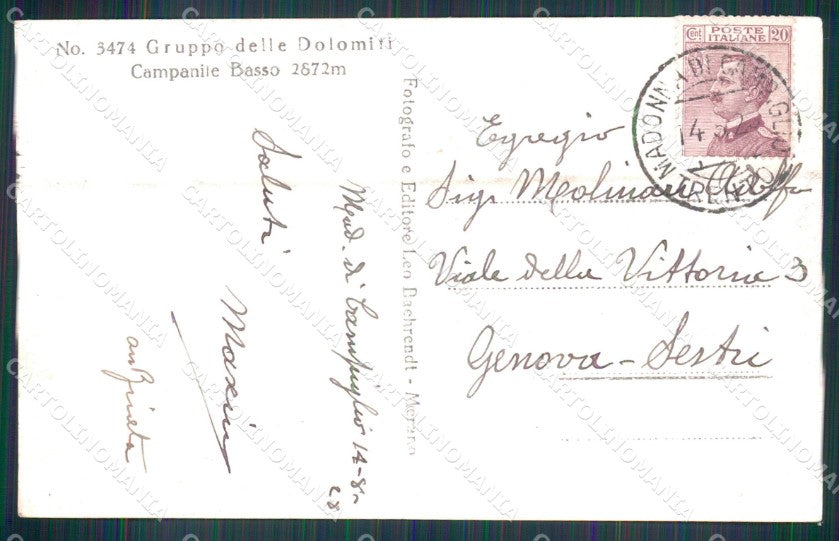 No. 3474 Gruppo delle Dolomiti
Campanile Basso 2872m
Fotografo e Editore Leo Baehrendt - Merano
Mad. di Campiglio 14-8-
28
Saluti
POSTE
ITALIANE
Cent 20
MADONNA DI CAMPIGLIO
TRENTO
14
Egregio
Sig. Molinari
Viale della Vittoria 3
Genova - Sestri
CARTOLINOMANIA